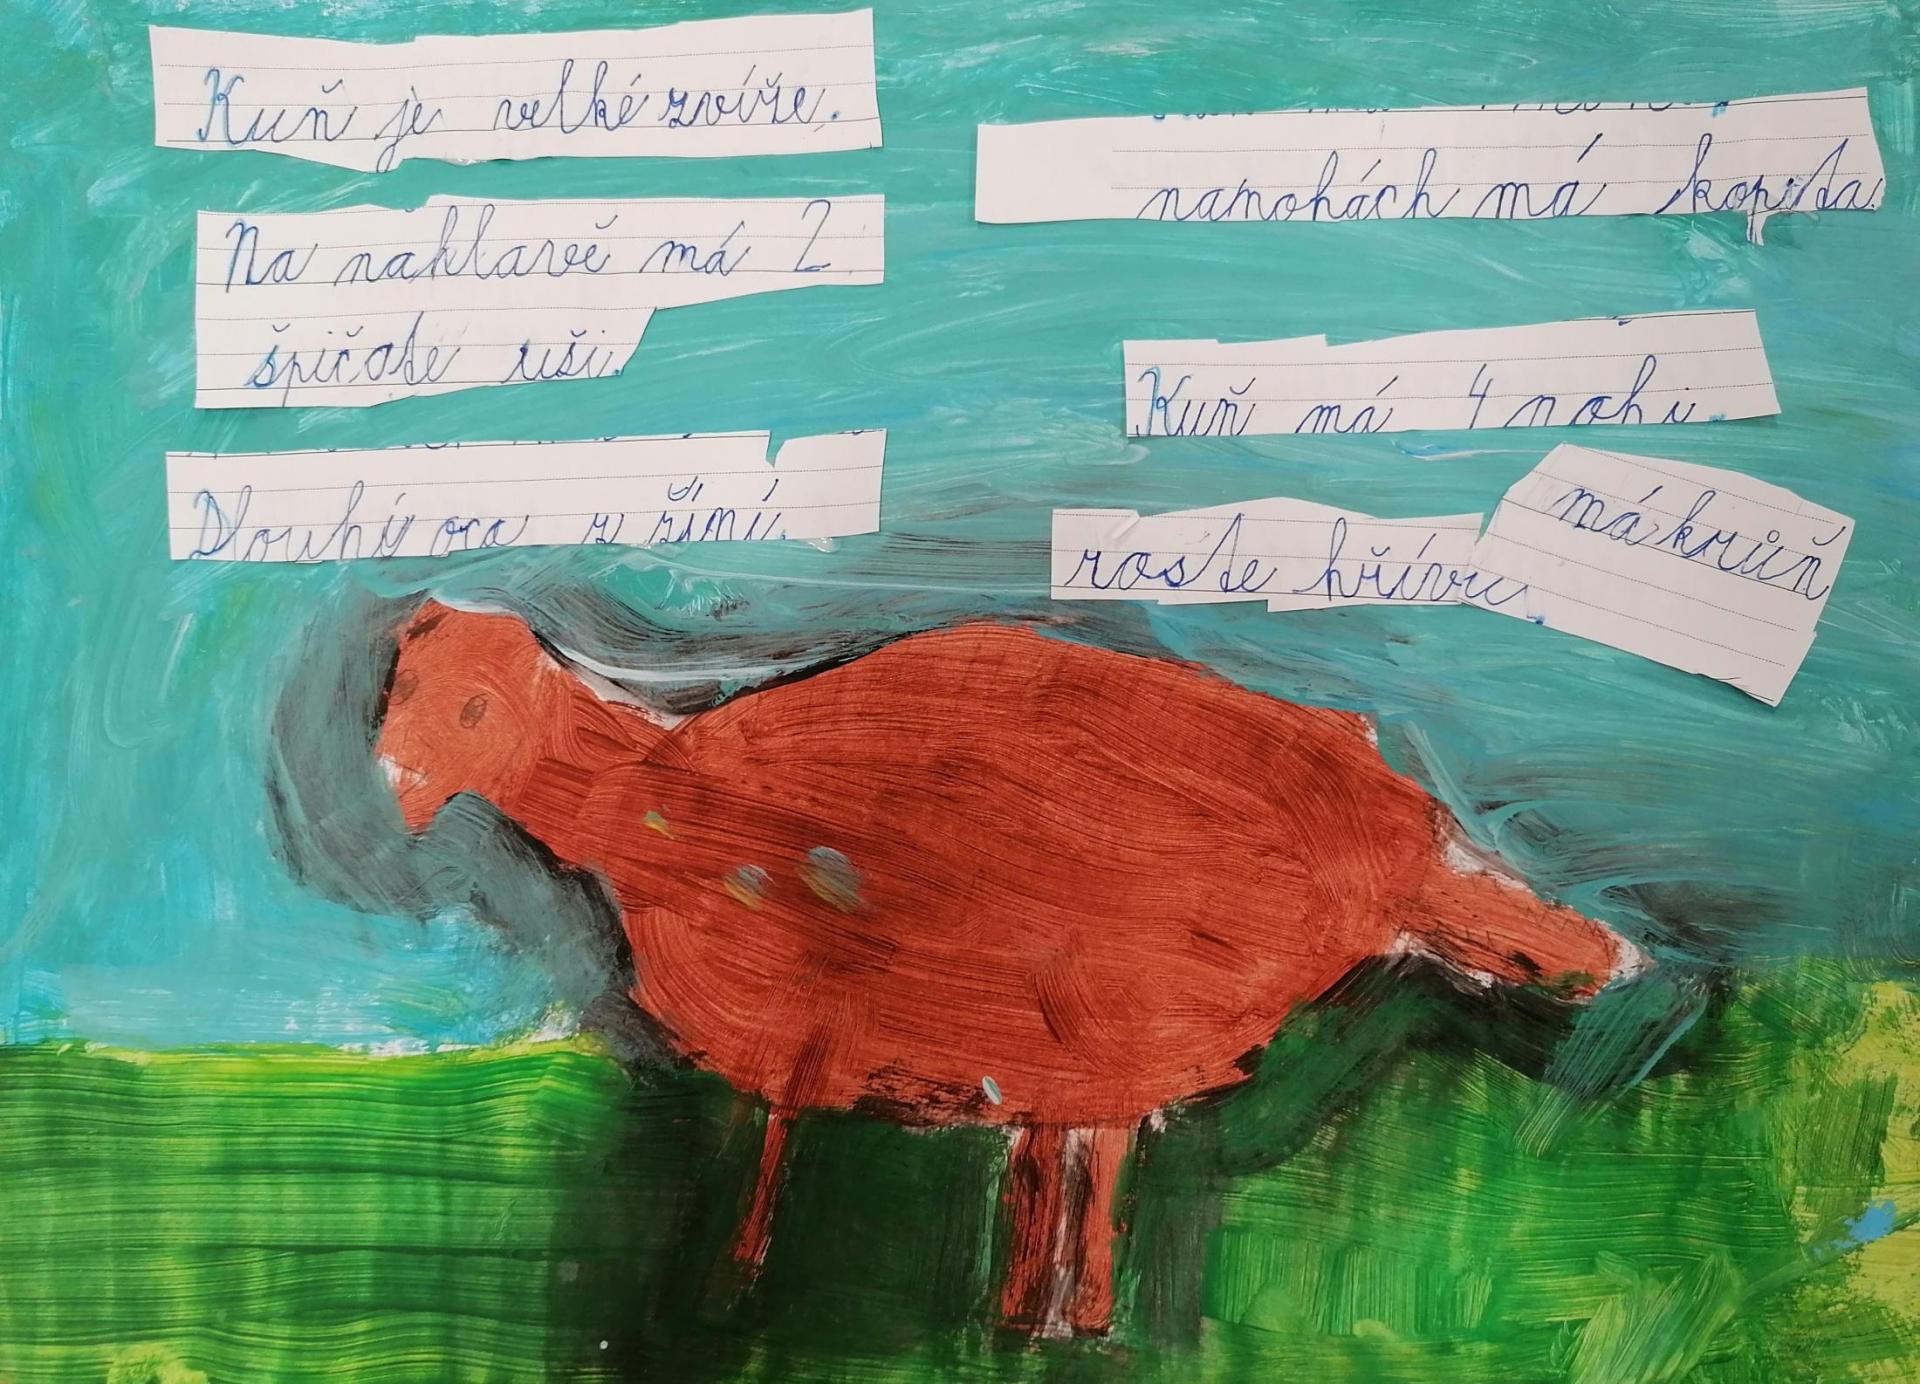 Kuň je velké zvíře.
Na náhlavě má 2
špičaté uši.
Dlouhí oca z žíní.
namohách má kopita.
Kuň má 4 nohi.
roste hříva
má krůň